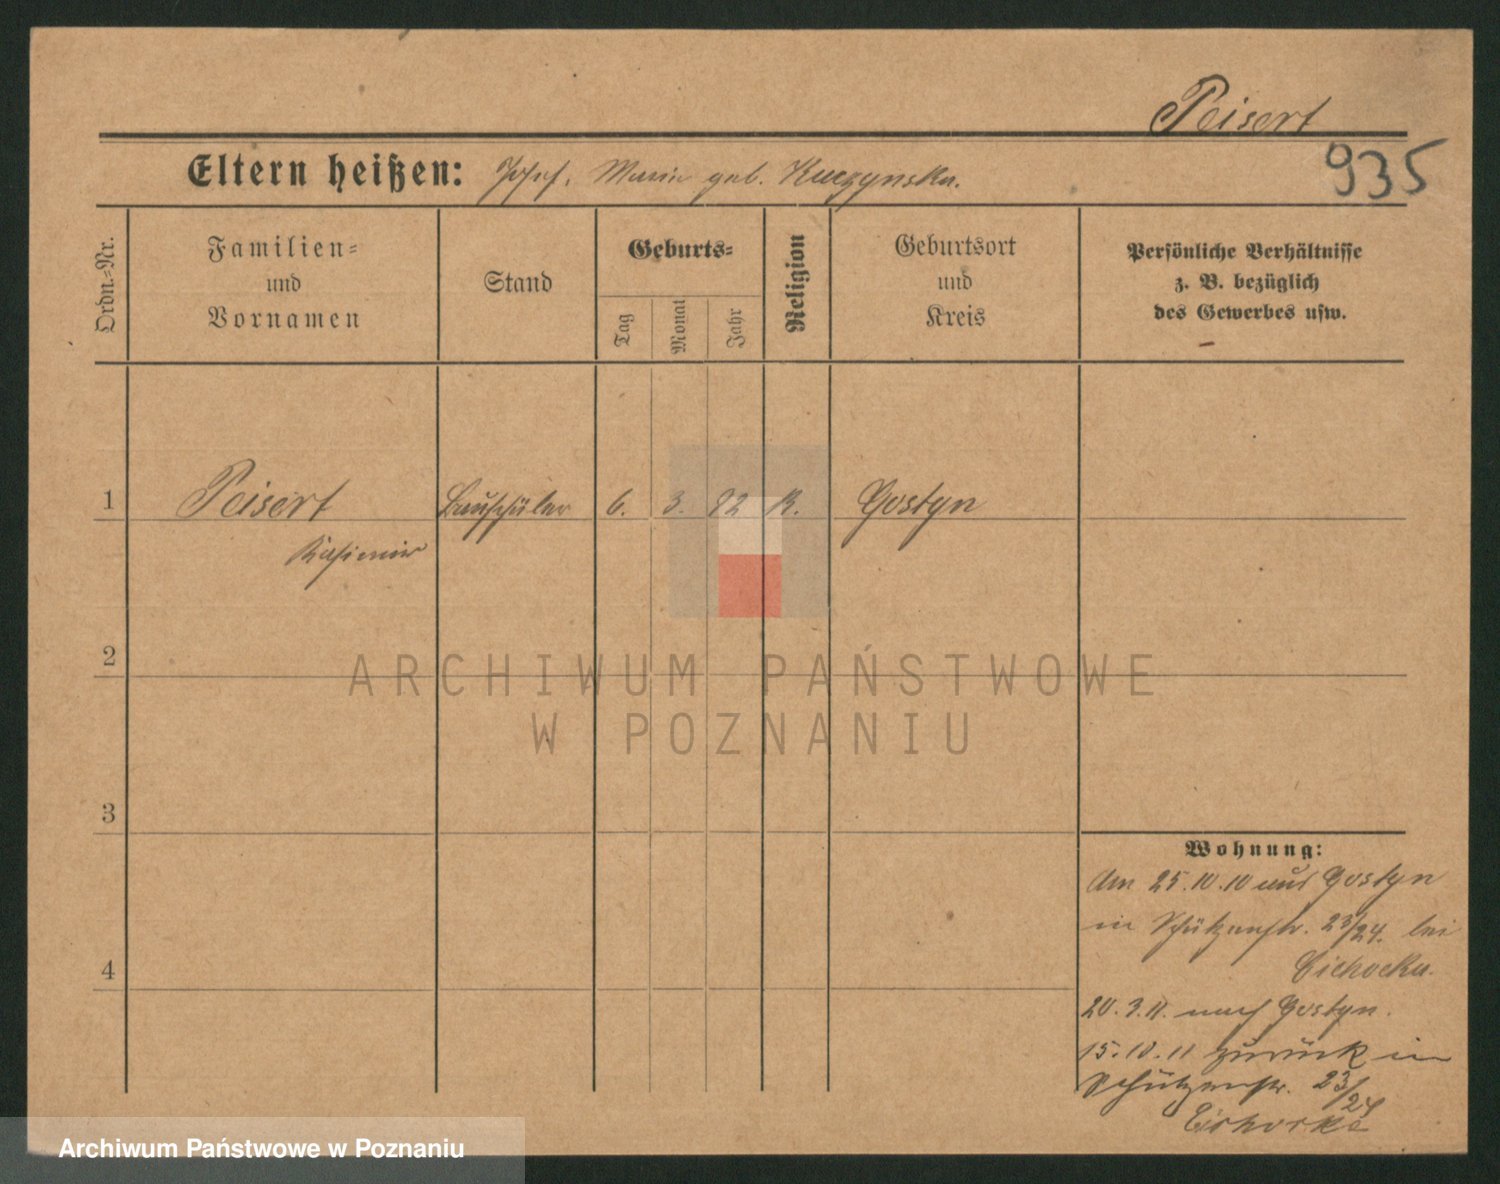 Peisert
935
Eltern heißen: Josef, Maria geb. Kuczynska.
Ordn.=Nr.
Familien=
und
Vornamen
Stand
Geburts=
Tag
Monat
Jahr
Religion
Geburtsort
und
Kreis
Persönliche Verhältnisse
z. B. bezüglich
des Gewerbes usw.
1 Peisert Bauschüler 6. 3. 92 K. Gostyn
Kasimir
2
3
4
Wohnung:
Am 25.10.10 aus Gostyn
in Schützenstr. 23/24. bei
Cichocka.
20.3.11. nach Gostyn.
15.10.11 zurück in
Schützenstr. 23/24
ARCHIWUM PAŃSTWOWE
W POZNANIU
Archiwum Państwowe w Poznaniu